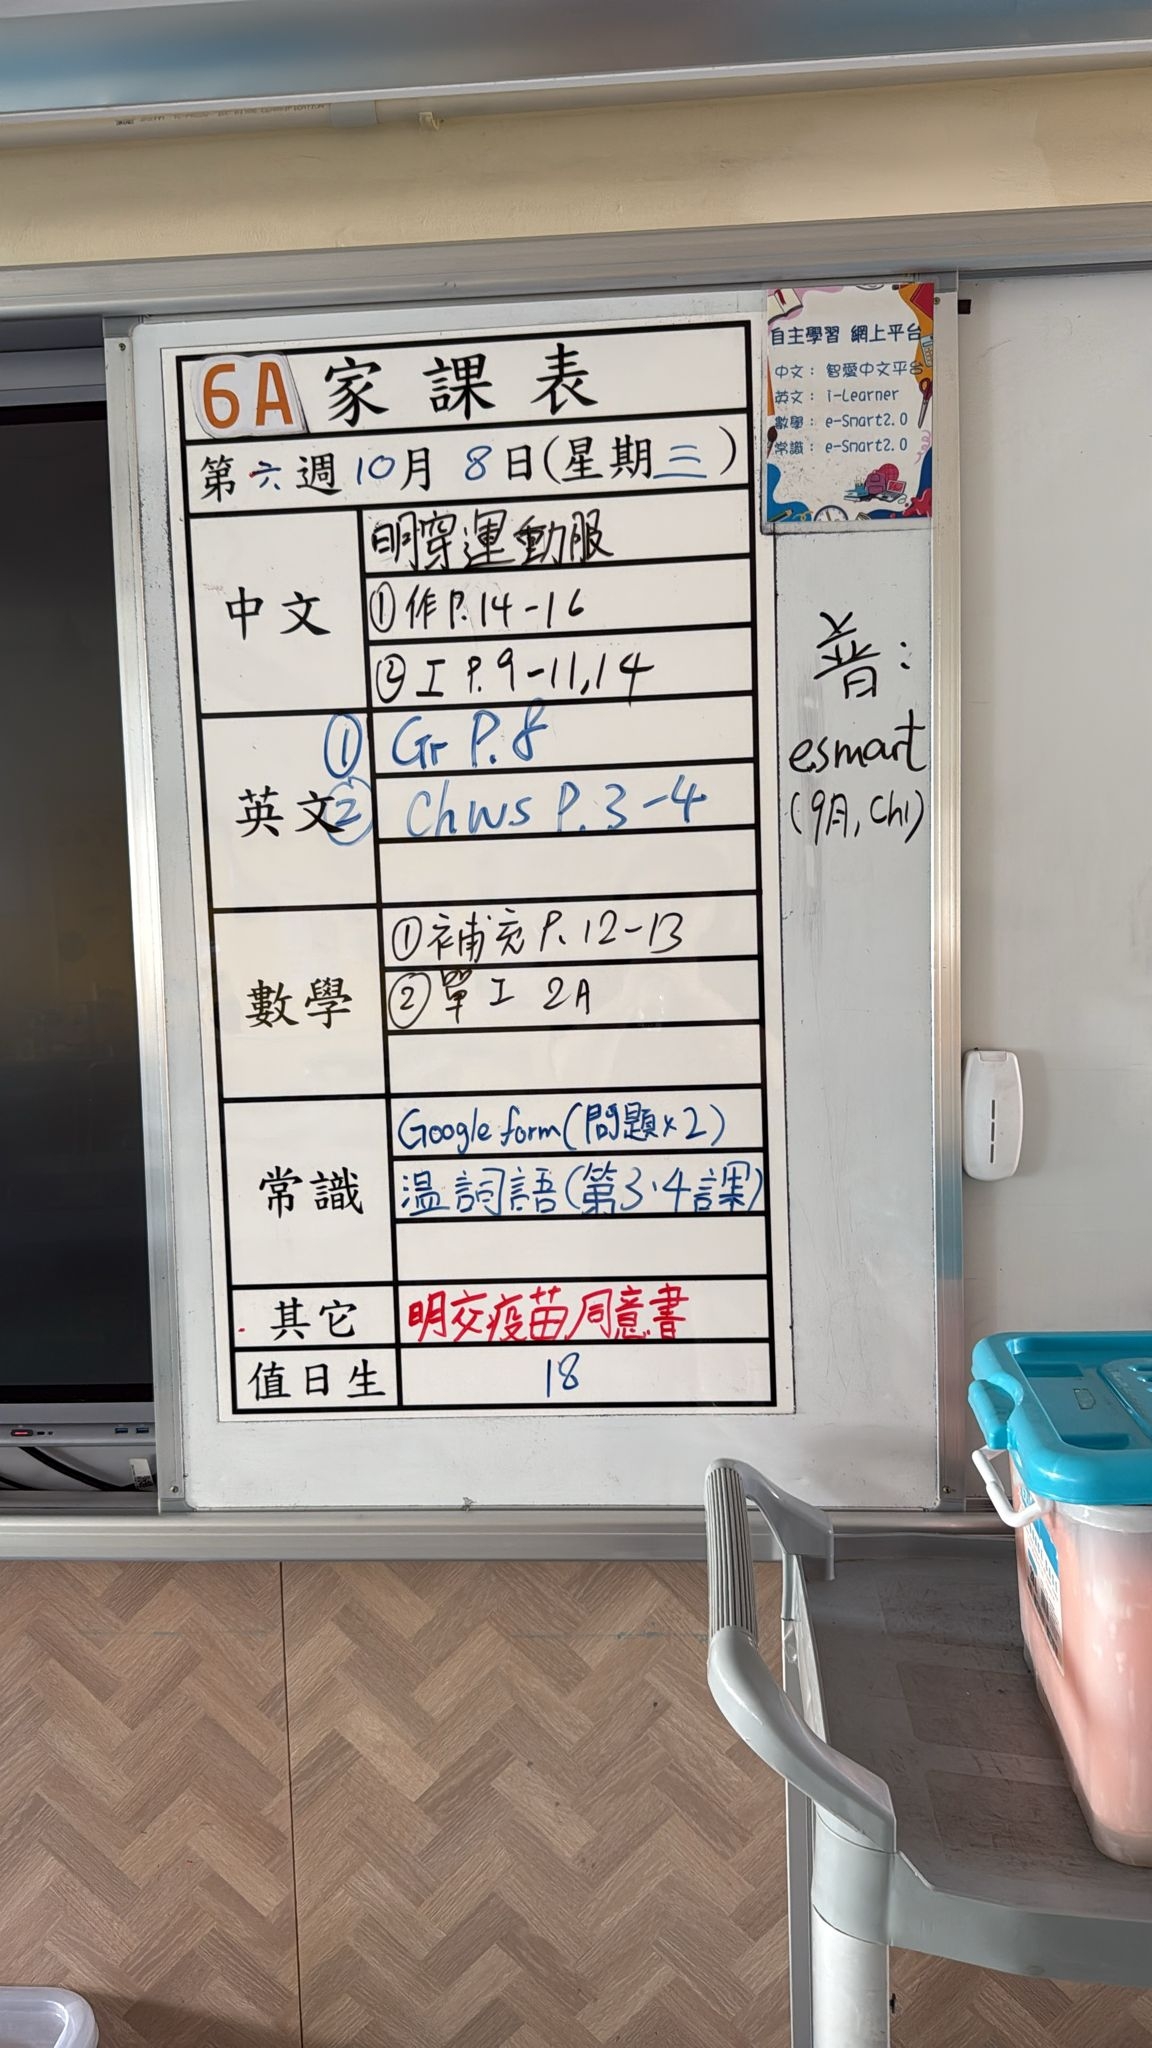 6A 家課表
第六週10月8日(星期三)
中文
明穿運動服
①作P.14-16
②工 P.9-11,14
英文
① Gr P.8
② Chws P.3-4
數學
①補充P.12-13
②單工 2A
常識
Google form(問題x2)
温詞語(第3、4課)
其它
明交疫苗同意書
值日生
18
自主學習 網上平台
中文：智愛中文平台
英文：i-Learner
數學：e-Smart2.0
常識：e-Smart2.0
普:
esmart
(9月, Chi)